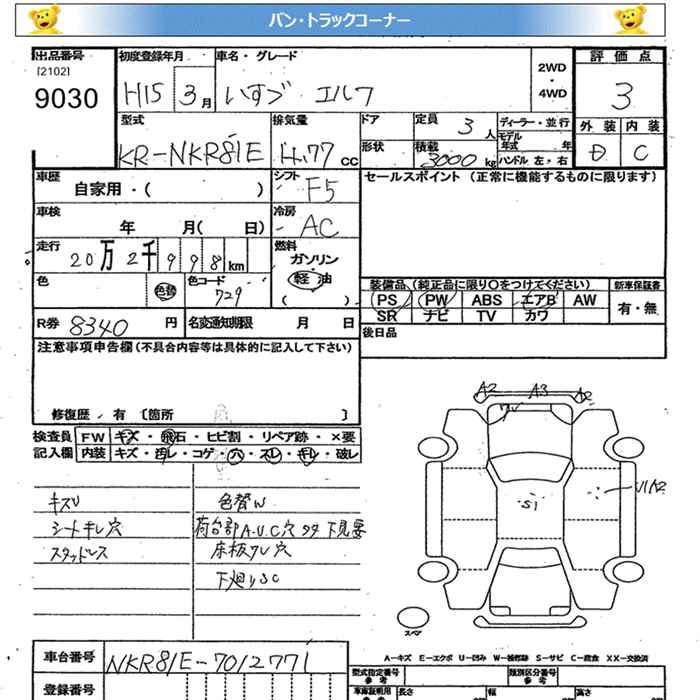 バン・トラックコーナー
出品番号 初度登録年月 車名・グレード 評価点
[2102]
9030
H15 3月 いすゞ エルフ 2WD・4WD 3
型式 排気量 ドア 定員 3人 ディーラー・並行 外装 内装
モデル年式 年
KR-NKR81E 4.77cc 形状 積載 3000kg ハンドル左,右 D C
車歴 シフト セールスポイント(正常に機能するものに限ります)
自家用・( ) F5
車検 冷房
年 月( 日) AC
走行 燃料
20万2千998km ガソリン
軽油
( )
色 色替 色コード 729
装備品(純正品に限り○をつけてください) 新車保証書
PS PW ABS エアB AW 有・無
SR ナビ TV カワ
R券 8340円 名変通知期限 月 日 後日品
注意事項申告欄(不具合内容等は具体的に記入して下さい)
修復歴・有〔箇所 〕
検査員 FW キズ・飛石・ヒビ割・リペア跡・×要
記入欄 内装 キズ・汚レ・コゲ・穴・スレ・キレ・破レ
キズU 色替W
シートキレ穴 荷台部A.U.C穴 サタ 下見要
スタッドレス 床板ワレ穴
下廻りSC
A2 A3 A2
S1
スペア
A-キズ E-エクボ U-凹み W-補修跡 S-サビ C-腐食 XX-交換済
車台番号 NKR81E-7012771
登録番号
型式指定番号 参考 類別区分番号 参考
車庫証明用 参考 長さ 幅 高さ